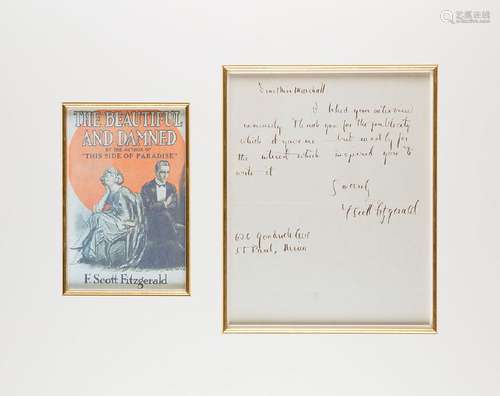 THE BEAUTIFUL
AND DAMNED
BY THE AUTHOR OF
"THIS SIDE OF PARADISE"
F. Scott Fitzgerald
Marshall
I liked your interview
Thank you for the publicity
which it gave me but mostly for
the interest which inspired you to
write it
Sincerely
F Scott Fitzgerald
626 Goodrich Ave
St Paul, Minn